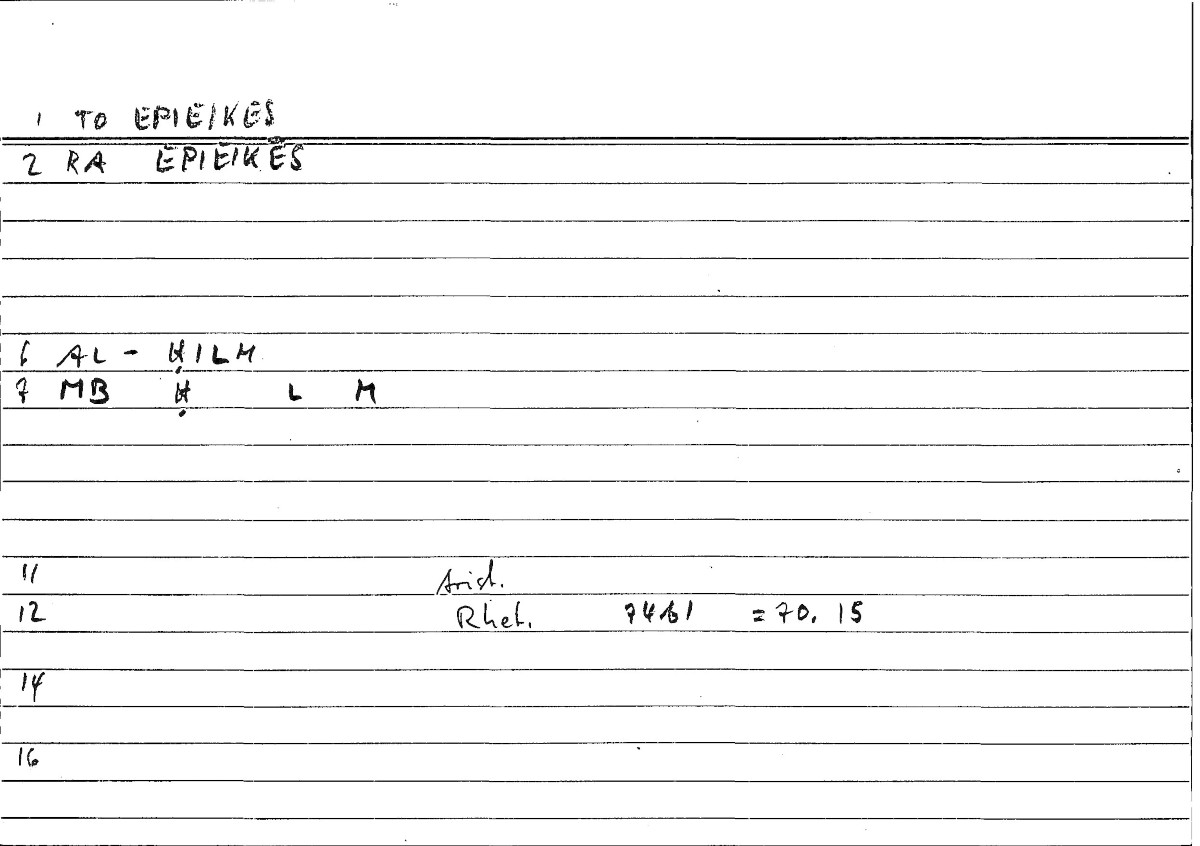 1 TO EPIEIKES
2 RA EPIEIKĒS
6 AL - ḤILM
7 MB Ḥ L M
11 Arist.
12 Rhet. 74b1 = 70. 15
14
16